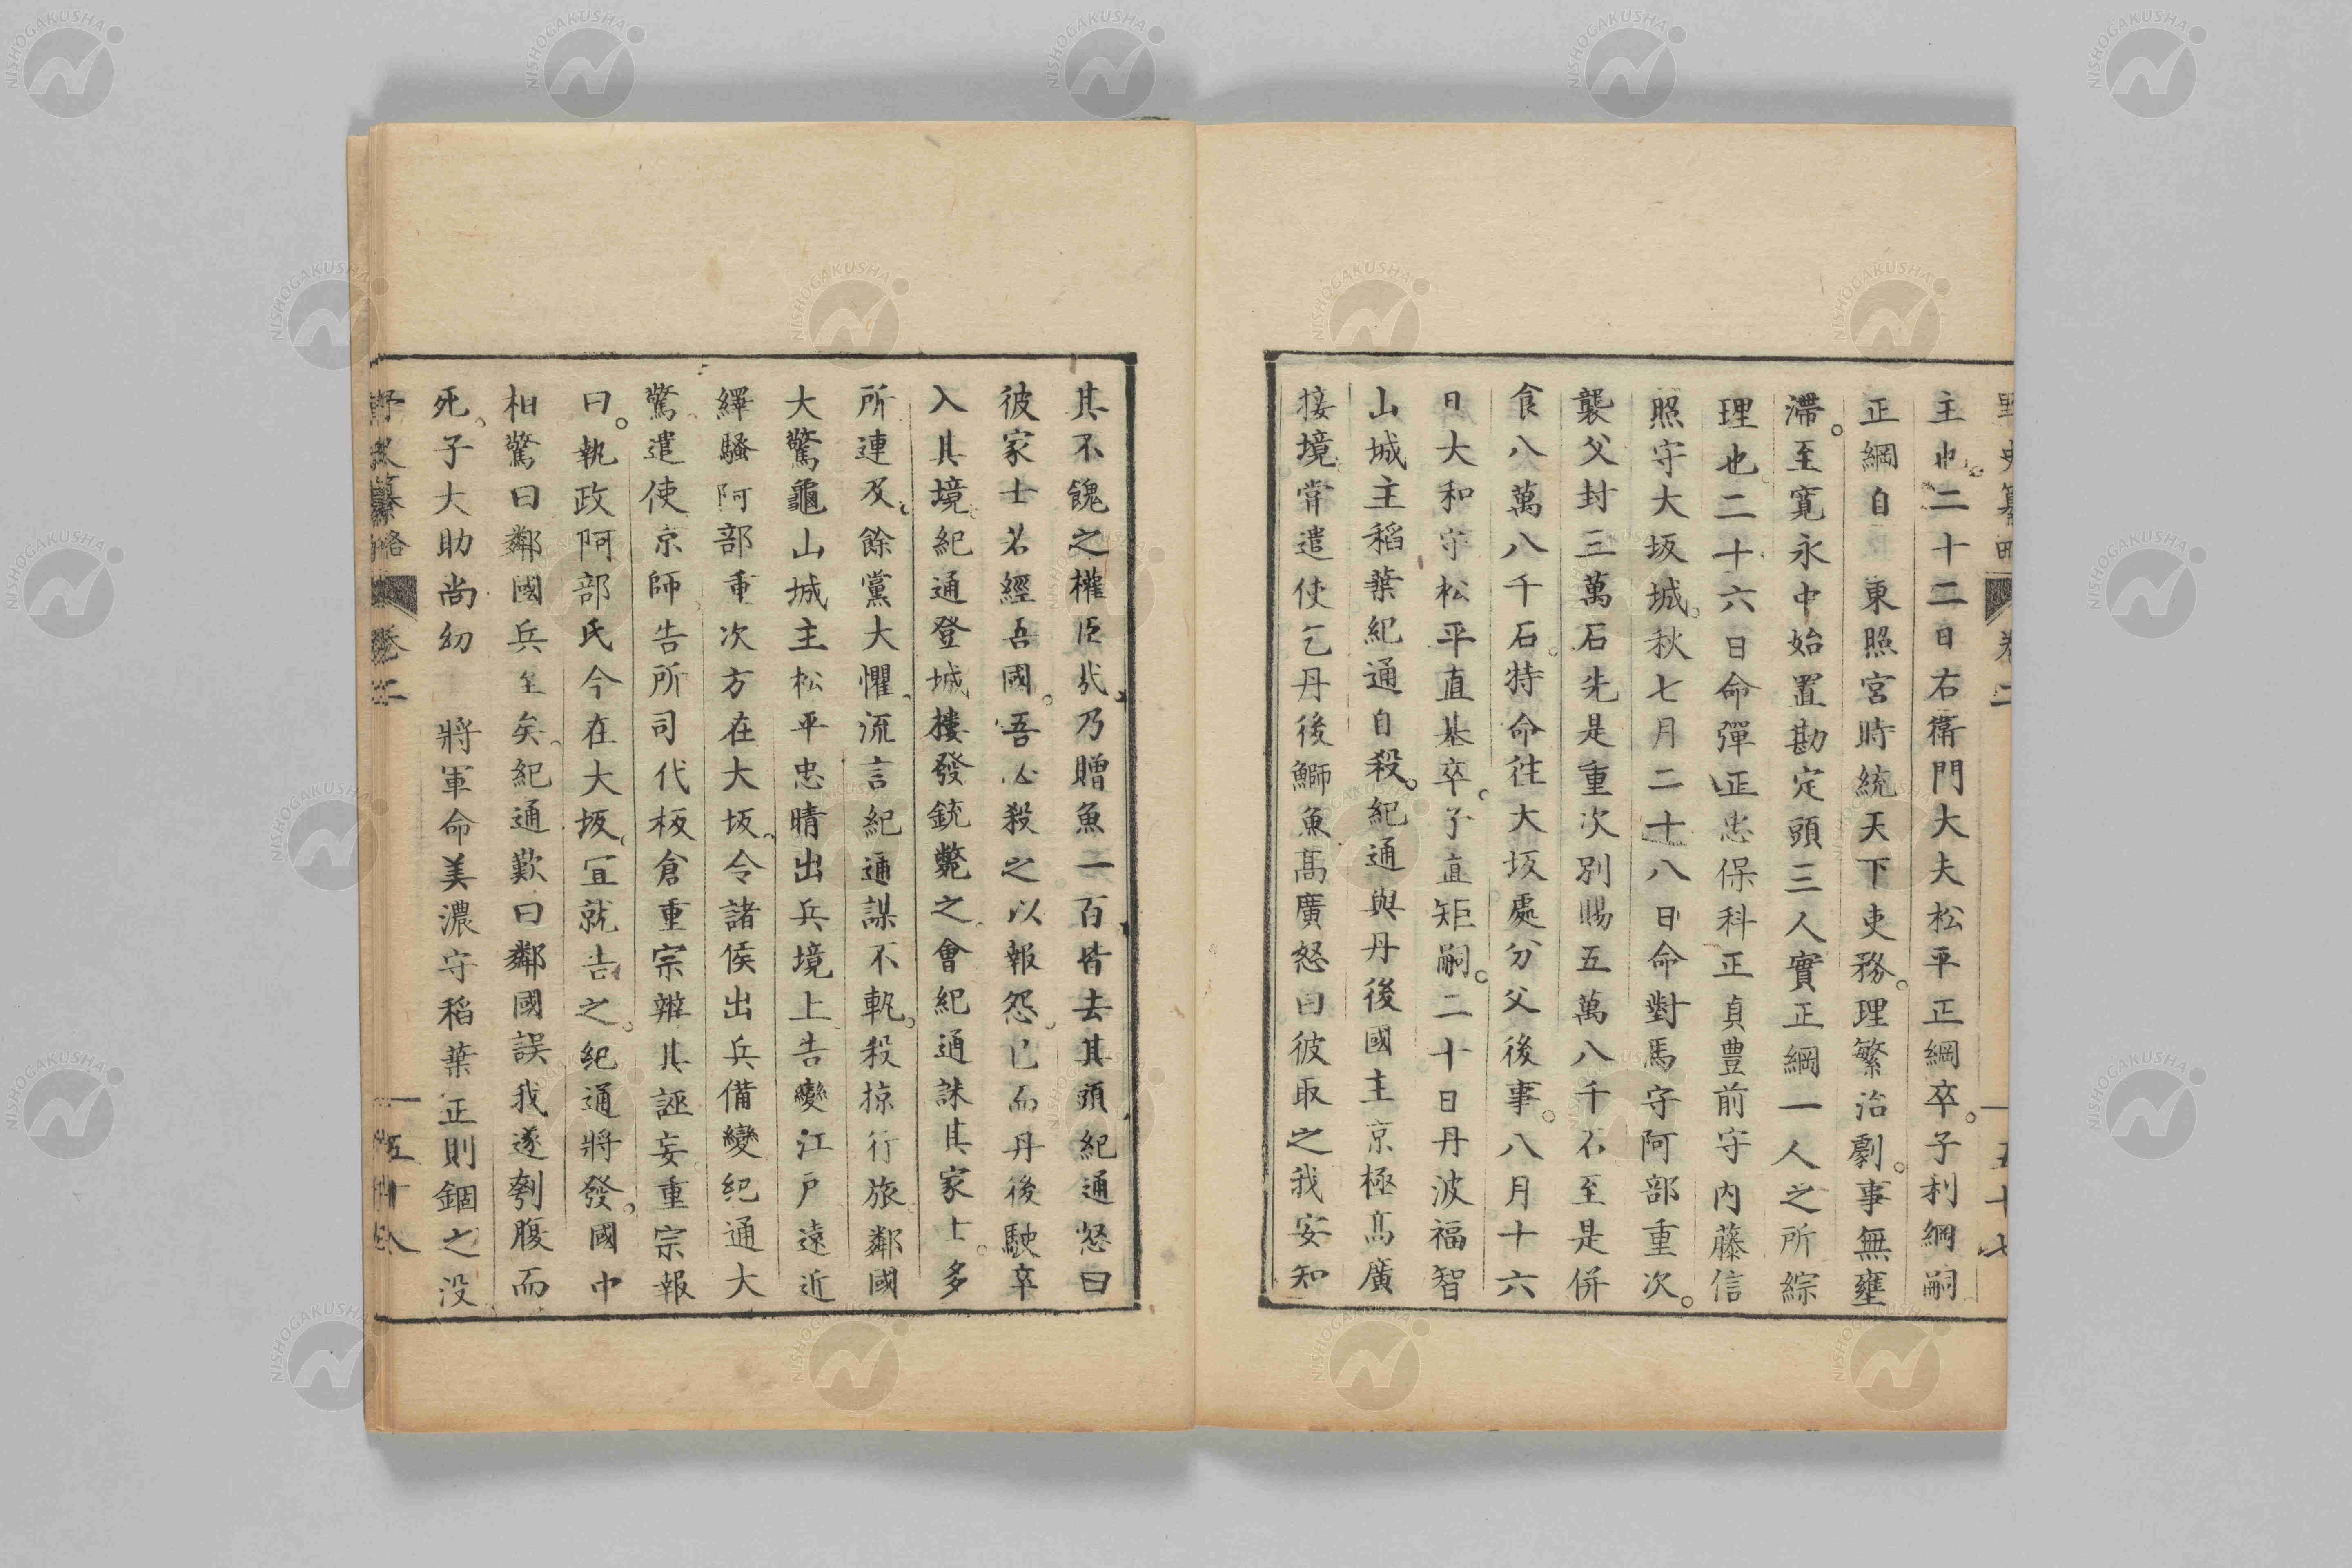 野史纂略 卷二 五十七
主也。二十二日右衛門大夫松平正綱卒。子利綱嗣
正綱自 東照宮時統天下吏務。理繁治劇。事無壅
滯。至寛永中始置勘定頭三人實正綱一人之所綜
理也二十六日命彈正忠保科正貞豊前守内藤信
照守大坂城。秋七月二十八日命對馬守阿部重次。
襲父封三萬石先是重次別賜五萬八千石至是併
食八萬八千石。特命往大坂處分父後事。八月十六
日大和守松平直基卒。子直矩嗣。二十日丹波福智
山城主稲葉紀通自殺。紀通與丹後國主京極髙廣
接境。甞遣使乞丹後鰤魚髙廣怒曰彼取之我安知
其不餽之權臣哉乃贈魚一百皆去其頭紀通怒曰
彼家士若經吾國。吾必殺之以報怨。已而丹後駛卒
入其境。紀通登城樓發銃斃之。會紀通誅其家士。多
所連及。餘黨大懼。流言紀通謀不軌。殺掠行旅。鄰國
大驚龜山城主松平忠晴出兵境上告變江戸遠近
繹騷阿部重次方在大坂。令諸侯出兵備變紀通大
驚遣使京師告所司代板倉重宗辨其誣妄重宗報
曰。執政阿部氏今在大坂。宜就告之。紀通將發。國中
相驚曰鄰國兵至矣。紀通歎曰鄰國誤我遂刳腹而
死。子大助尚幼 將軍命美濃守稲葉正則錮之没
野史纂略 卷二 五十八
NISHOGAKUSHA